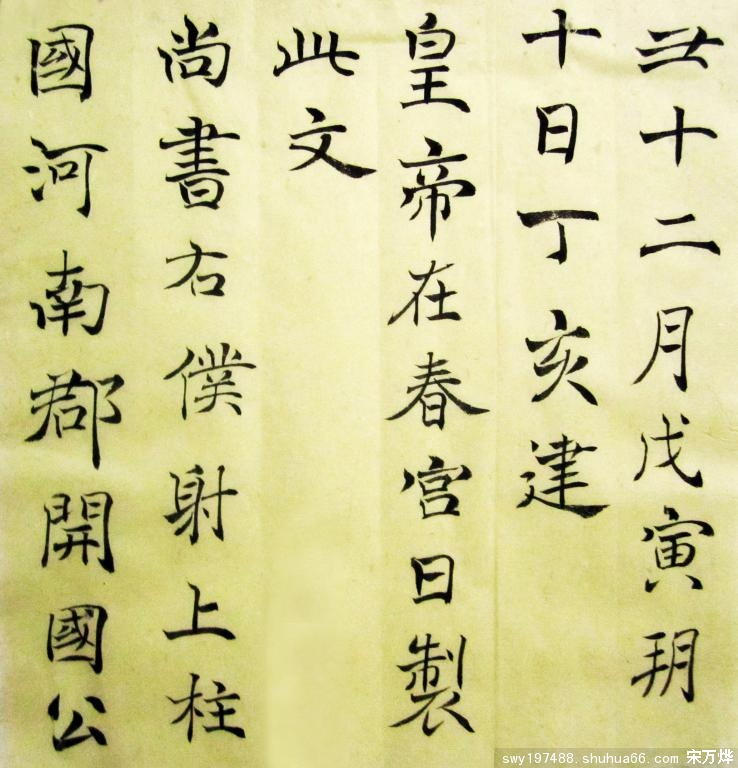 丑十二月戊寅朔
十日丁亥建
皇帝在春宮日製
此文
尚書右僕射上柱
國河南郡開國公
swy197488.shuhua66.com 宋万烨